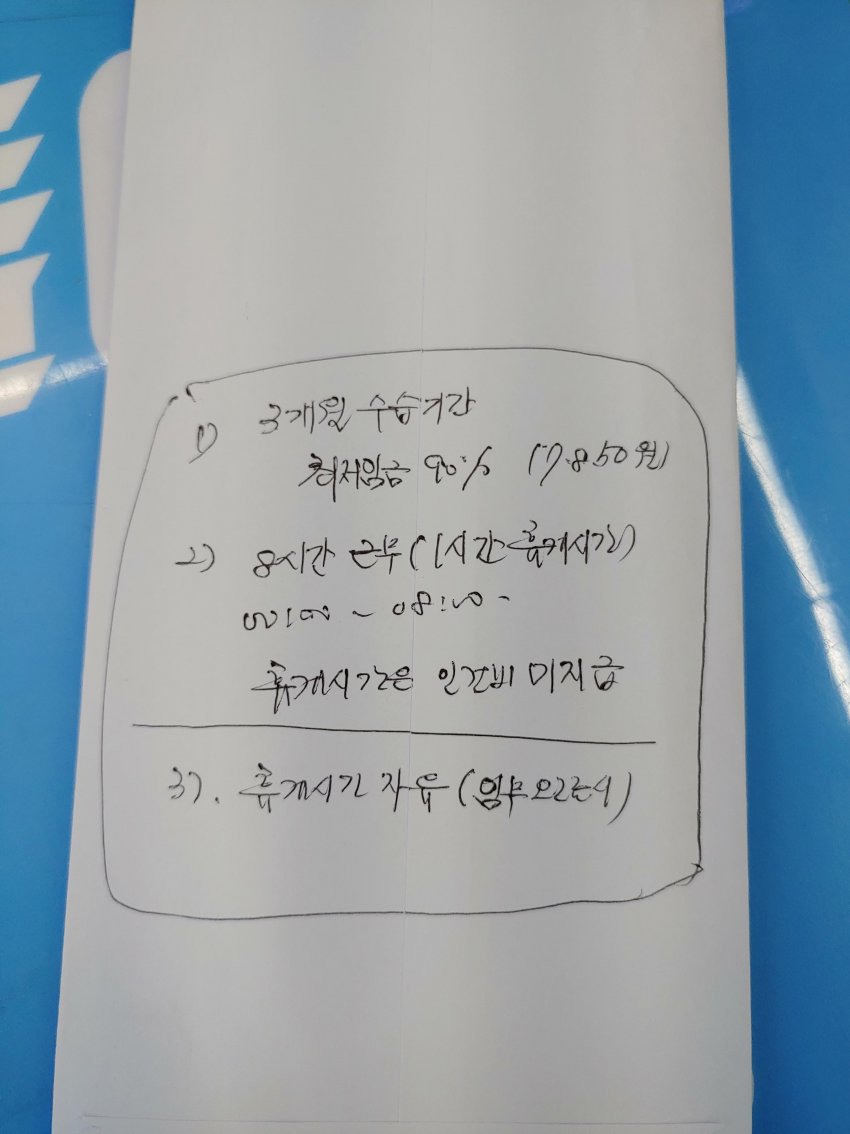 1) 3개월 수습기간
최저임금 90% (7.850원)
2) 8시간 근무 (1시간 휴게시간)
00:00 ~ 08:00 -
휴게시간은 인건비 미지급
3). 휴게시간 자유